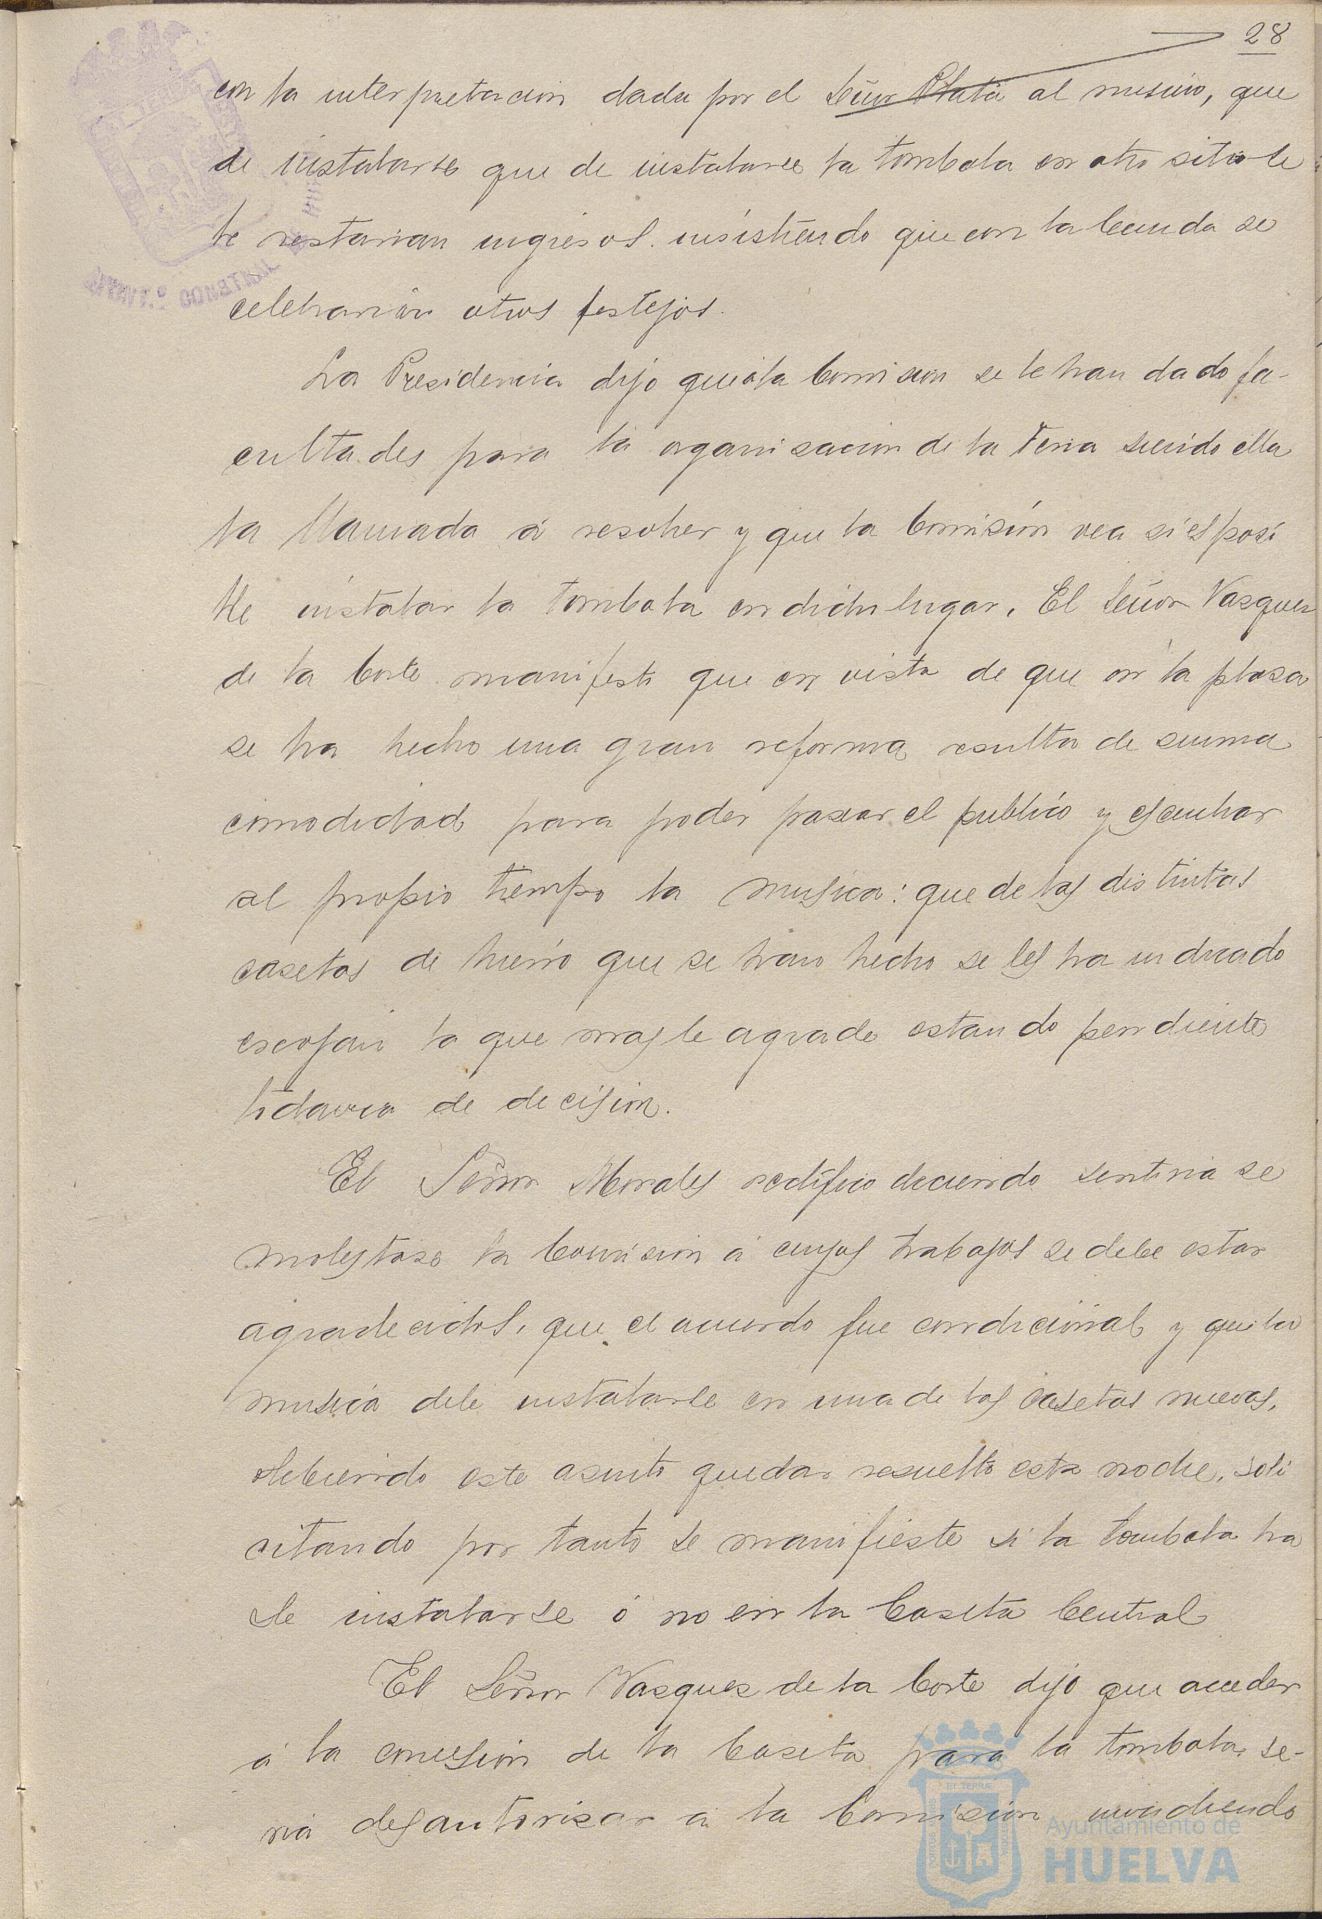 28
con la interpretacion dada por el Señor Plata al mismo, que
de instalarse que de instalarse la tombola en otro sitio le
le restarian ingresos. insistiendo que con la banda se
celebrarían otros festejos.
La Presidencia dijo que á la Comision se le han dado fa-
cultades para la organisacion de la Feria siendo ella
la llamada á resolver y que la Comisión vea si es posi
ble instalar la tombola en dicho lugar. El Señor Vasquez
de la Corte manifestó que en vista de que en la plasa
se ha hecho una gran reforma, resulta de suma
comodidad para poder pasear el publico y escuchar
al propio tiempo la musica: que de las distintas
casetas de hierro que se han hecho se les ha indicado
escojan la que mas le agrade estando pendiente
todavia de decision.
El Señor Morales rectifico diciendo sentiria se
molestase la Comision á cuyos trabajos se debe estar
agradecidos, que el acuerdo fue condicional y que la
musica debe instalarse en una de las casetas nuevas,
debiendo este asunto quedar resuelto esta noche, soli
citando por tanto se manifieste si la tombola ha
de instalarse ó no en la Caseta Central
El Señor Vasquez de la Corte dijo que acceder
á la concesion de la Caseta para la tombola, se-
ria desautorisar á la Comision
Ayuntamiento de
HUELVA